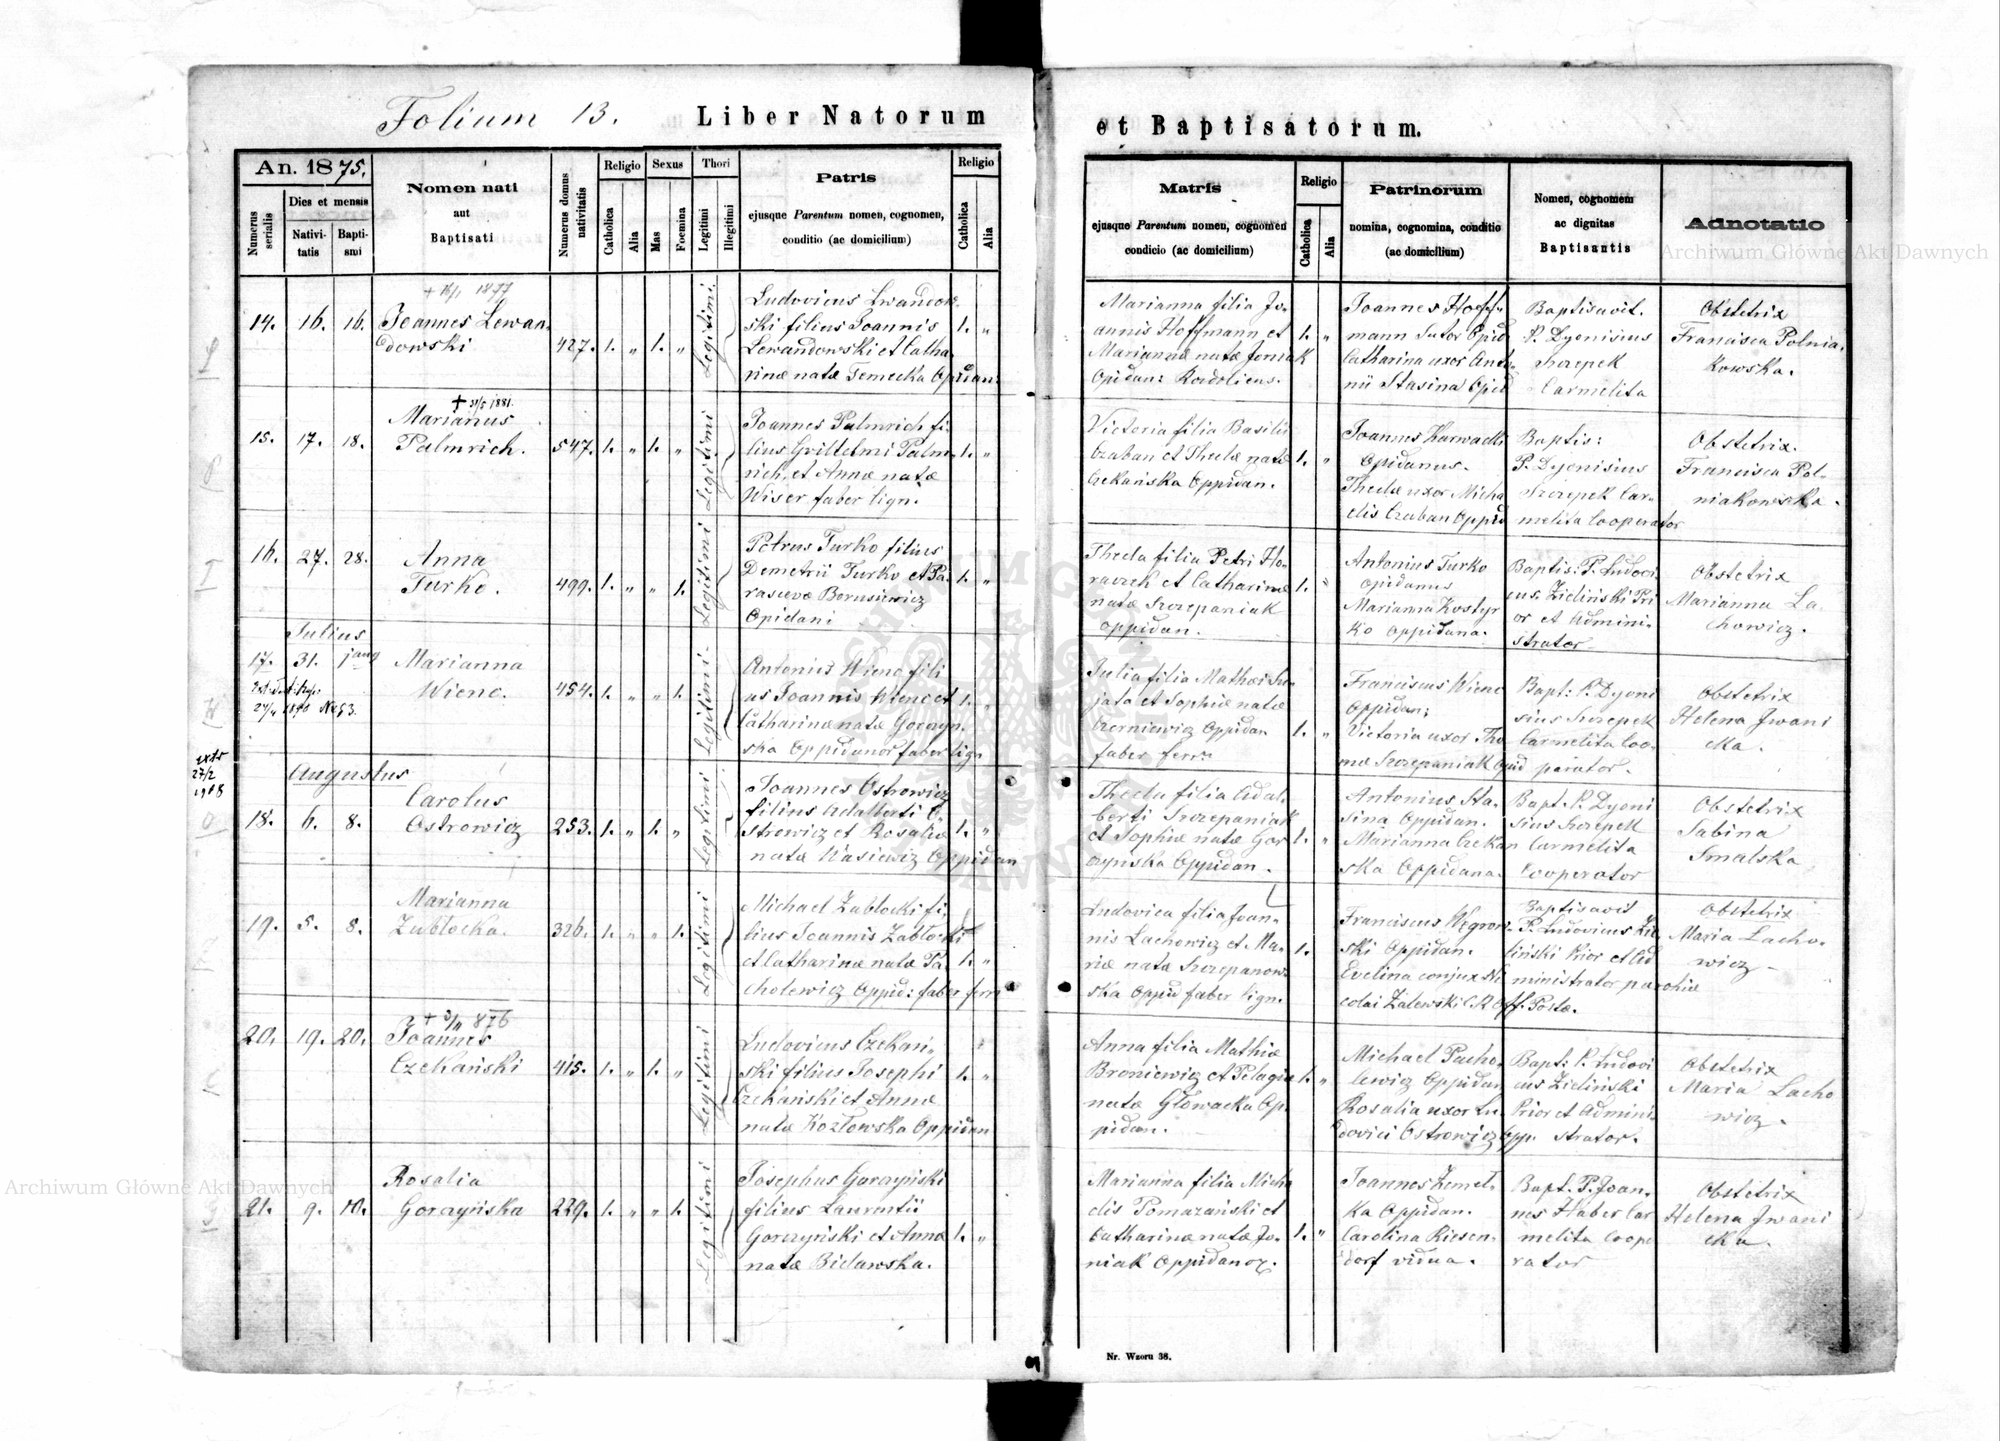 Folium 13. Liber Natorum et Baptisatorum.
An. 1875.
Numerus serialis
Dies et mensis
Nativitatis
Baptismi
Nomen nati
aut
Baptisati
Numerus domus nativitatis
Religio
Catholica
Alia
Sexus
Mas
Foemina
Thori
Legitimi
Illegitimi
Patris
ejusque Parentum nomen, cognomen,
conditio (ac domicilium)
Religio
Catholica
Alia
Matris
ejusque Parentum nomen, cognomen
condicio (ac domicilium)
Religio
Catholica
Alia
Patrinorum
nomina, cognomina, conditio
(ac domicilium)
Nomen, cognomen
ac dignitas
Baptisantis
Adnotatio
14. 16. 16.
1877
Joannes Lewan
dowski
427. 1. „ 1. „ Legitimi
Ludovicus Lwandow
ski filius Joannis
Lewandowski et Catha
rinæ natæ Temecka Opidan:
1. „
Marianna filia Jo
annis Hoffmann et
Mariannæ natæ Joniak
Opidan:
1. „
Joannes Hoff
mann Sutor Opid
Catharina uxor Anto
nii Stasina Opid
Baptisavit.
P. Dyonisius
Szczepek
Carmelita
Obstetrix
Francisca Polnia
kowska.
15. 17. 18.
+ 31/5 1881.
Marianus
Palmrich.
547. 1. „ 1. „ Legitimi
Joannes Palmrich fi
lius Guillelmi Palm
rich, et Annæ natæ
Wiser faber lign.
1. „
Victoria filia Basilii
Czaban et Theclæ natæ
Czekańska Oppidan.
1. „
Joannes Karwacki
Opidanus.
Theclæ uxor Micha
elis Czaban Oppid
Baptis:
P. Dyonisius
Szczepek Car
melita Cooperator
Obstetrix.
Francisca Pol
niakowska.
16. 27. 28.
Anna
Turko.
499. 1. „ „ 1. Legitimi
Petrus Turko filius
Demetrii Turko et Pa
rascevæ Borusiewicz
Opidani
1. „
Thecla filia Petri Ho
raczek et Catharinæ
natæ Szczepaniak
Oppidan.
1. „
Antonius Turko
opidanus
Marianna Kostyr
ko Oppidana.
Baptis: P. Ludovi
cus Zieliński Pri
or et Admini
strator.
Obstetrix
Marianna La
chowicz.
Julius
17. 31. 1 aug
27/4 1896 N 93.
Marianna
Wienc.
454. 1. „ „ 1. Legitimi
Antonius Wienc fili
us Joannis Wienc et
Catharinæ natæ Gorczyn
ska Oppidanor faber lign
1. „
Julia filia Mathæi Su
jata et Sophiæ natæ
Czerniewicz Oppidan
faber ferr.
1. „
Franciscus Wienc
Oppidan;
Victoria uxor Tho
mæ Szczepaniak Opid
Bapt: P. Dyoni
sius Szczepek
Carmelita Coo
perator.
Obstetrix
Helena Iwani
cka.
extr
27/2
1918
Augustus
18. 6. 8.
Carolus
Ostrowicz
253. 1. „ 1. „ Legitimi
Joannes Ostrowicz
filius Adalberti O
strowicz et Rosaliæ
natæ Wasiewicz Oppidan
1. „
Thecla filia Adal
berti Szczepaniak
et Sophiæ natæ Gor
czynska Oppidan.
1. „
Antonius Sta
sina Oppidan.
Marianna Czekan
ska Oppidana.
Bapt. P. Dyoni
sius Szczepek
Carmelita
Cooperator
Obstetrix
Sabina
Smalska
19. 5. 8.
Marianna
Zabłocka.
326. 1. „ „ 1. Legitimi
Michael Zabłocki fi
lius Joannis Zabłocki
et Catharinæ natæ Pa
cholewicz Oppid: faber ferri
1. „
Ludovica filia Joan
nis Lachowicz et Ma
riæ natæ Szczepanow
ska Oppid faber lign.
1.
Franciscus Węgrow
ski Oppidan.
Evelina conjux Ni
colai Zalewski C.R. Off. Postæ.
Baptisavit
P. Ludovicus Zie
liński Prior et Ad
ministrator parochiæ
Obstetrix
Maria Lacho
wicz
20. 19. 20.
876
Joannes
Czekański
415. 1. „ 1. „ Legitimi
Ludovicus Czekań
ski filius Josephi
Czekański et Annæ
natæ Kozłowska Oppidan
1. „
Anna filia Mathiæ
Broniewicz et Pelagiæ
natæ Głowacka Op
pidan.
1. „
Michael Pacho
lewicz Oppidan
Rosalia uxor Lu
dovici Ostrowicz Opp.
Bapt: P. Ludovi
cus Zieliński
Prior et Admini
strator.
Obstetrix
Maria Lacho
wicz.
21. 9. 10.
Rosalia
Gorczyńska
229. 1. „ „ 1. Legitimi
Josephus Gorczyński
filius Laurentii
Gorczyński et Annæ
natæ Bielawska.
1. „
Marianna filia Micha
elis Pomazański et
Catharinæ natæ Jo
niak Oppidanor.
1. „
Joannes Zemel
ka Oppidan.
Carolina Riesen
dorf vidua.
Bapt. P. Joan
nes Haber Car
melita Coope
rator
Obstetrix
Helena Iwani
cka.
Nr. Wzoru 38.
Archiwum Główne Akt Dawnych
Archiwum Główne Akt Dawnych